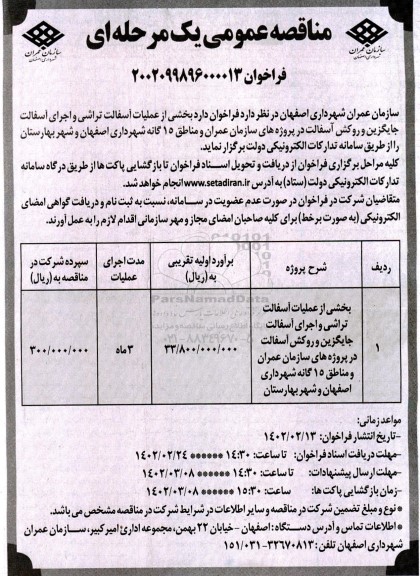 مناقصه عمومی یک مرحله ای
سازمان عمران
شهرداری اصفهان
سازمان عمران
شهرداری اصفهان
فراخوان ۲۰۰۲۰۹۹۸۹۶۰۰۰۰۱۳
سازمان عمران شهرداری اصفهان در نظر دارد فراخوان دارد بخشی از عملیات آسفالت تراشی و اجرای آسفالت
جایگزین و روکش آسفالت در پروژه های سازمان عمران و مناطق ۱۵ گانه شهرداری اصفهان و شهر بهارستان
را از طریق سامانه تدارکات الکترونیکی دولت برگزار نماید.
کلیه مراحل برگزاری فراخوان از دریافت و تحویل اسناد فراخوان تا بازگشایی پاکت ها از طریق درگاه سامانه
تدارکات الکترونیکی دولت (ستاد) به آدرس www.setadiran.ir انجام خواهد شد.
متقاضیان شرکت در فراخوان در صورت عدم عضویت در سامانه، نسبت به ثبت نام و دریافت گواهی امضای
الکترونیکی (به صورت برخط) برای کلیه صاحبان امضای مجاز و مهر سازمانی اقدام لازم را به عمل آورند.
ردیف
شرح پروژه
برآورد اولیه تقریبی
به (ریال)
مدت اجرای
عملیات
سپرده شرکت در
مناقصه به (ریال)
۱
بخشی از عملیات آسفالت
تراشی و اجرای آسفالت
جایگزین و روکش آسفالت
در پروژه های سازمان عمران
و مناطق ۱۵ گانه شهرداری
اصفهان و شهر بهارستان
۳۳/۸۰۰/۰۰۰/۰۰۰
۳ ماه
۳۰۰/۰۰۰/۰۰۰
ParsNamadData
۰۲۱-۸۸۳۴۹۶۷۰-۵
مواعد زمانی:
-تاریخ انتشار فراخوان: ۱۴۰۲/۰۲/۱۳
-مهلت دریافت اسناد فراخوان: تا ساعت: ۱۴:۳۰ ****** ۱۴۰۲/۰۲/۲۴
-مهلت ارسال پیشنهادات: تا ساعت: ۱۴:۳۰ ****** ۱۴۰۲/۰۳/۰۸
-زمان بازگشایی پاکت ها: ساعت: ۱۵:۳۰ ****** ۱۴۰۲/۰۳/۰۸
* نوع و مبلغ تضمین شرکت در مناقصه و سایر اطلاعات در شرایط شرکت در مناقصه مشخص می باشد.
* اطلاعات تماس و آدرس دستگاه: اصفهان - خیابان ۲۲ بهمن، مجموعه اداری امیر کبیر، سازمان عمران
شهرداری اصفهان تلفن: ۳۲۶۷۰۸۱۳-۱۵۱/۰۳۱